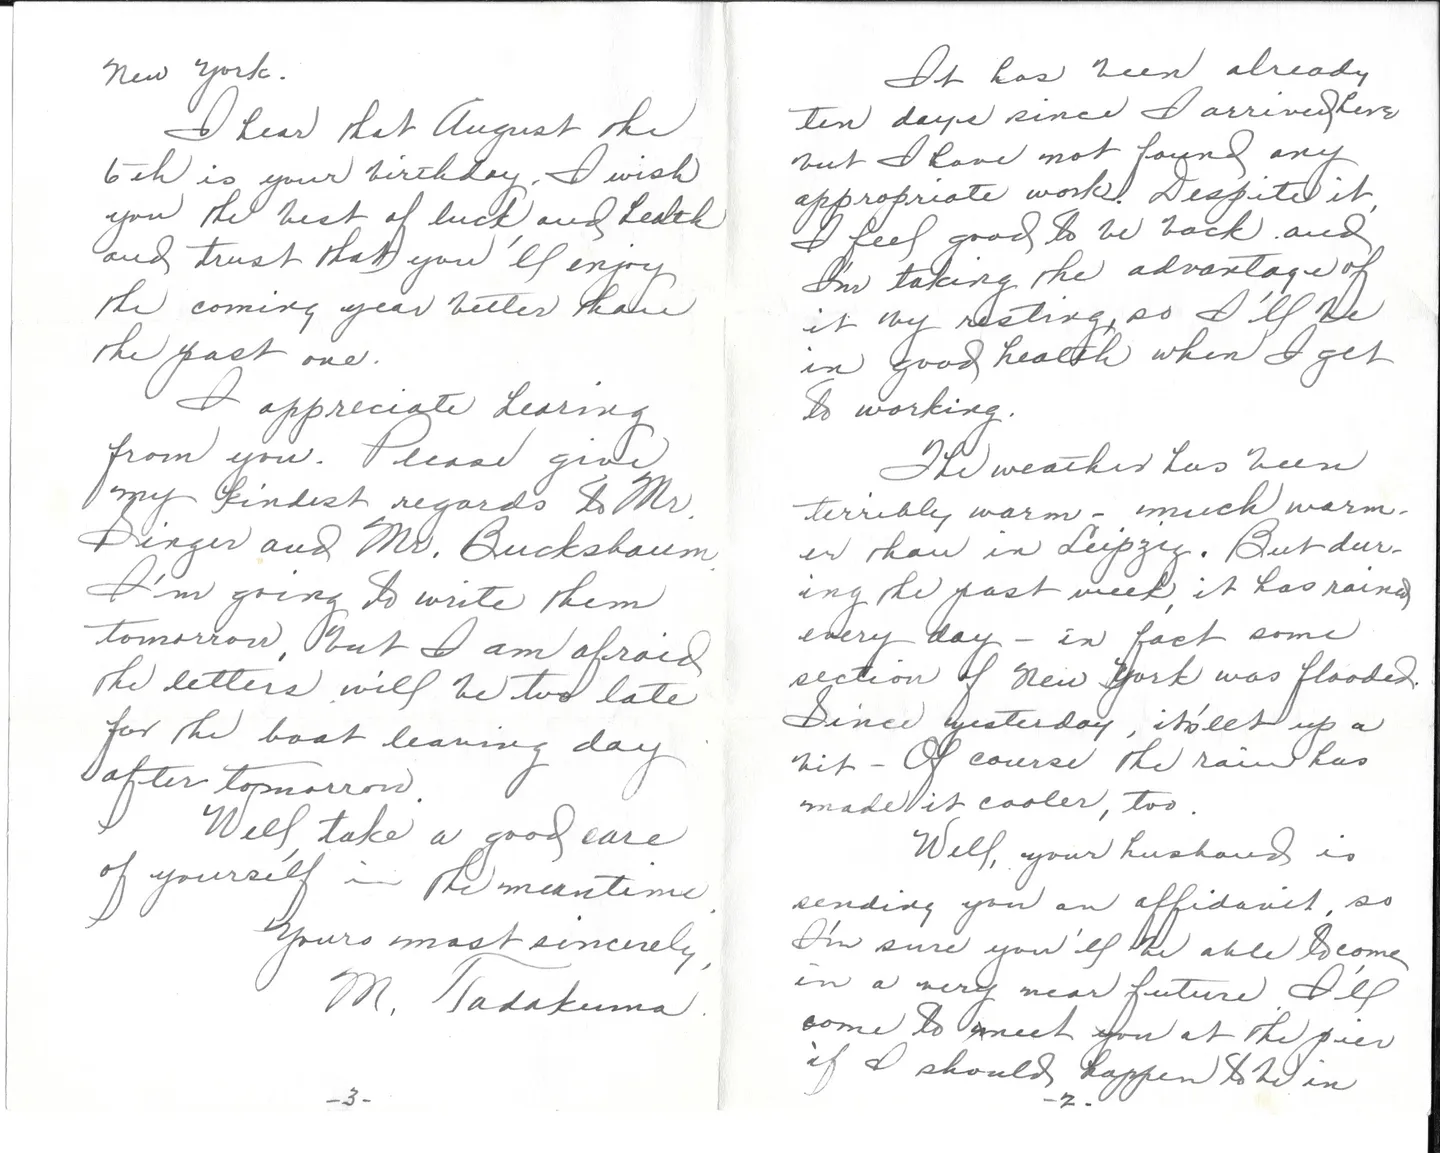 It has been already
ten days since I arrived here
but I have not found any
appropriate work. Despite it,
I feel good to be back and
I'm taking the advantage of
it by resting, so I'll be
in good health when I get
to working.
The weather has been
terribly warm - much warm-
er than in Leipzig. But dur-
ing the past week, it has rained
every day - in fact some
section of New York was flooded.
Since yesterday, it's let up a
bit - Of course the rain has
made it cooler, too.
Well, your husband is
sending you an affidavit, so
I'm sure you'll be able to come
in a very near future. I'll
come to meet you at the pier
if I should happen to be in
-2-
New York.
I hear that August the
6th is your birthday. I wish
you the best of luck and health
and trust that you'll enjoy
the coming year better than
the past one.
I appreciate hearing
from you. Please give
my kindest regards to Mr.
Singer and Mr. Bucksbaum.
I'm going to write them
tomorrow, but I am afraid
the letters will be too late
for the boat leaving day
after tomorrow.
Well, take a good care
of yourself in the meantime.
Yours most sincerely,
M. Tadakuma.
-3-